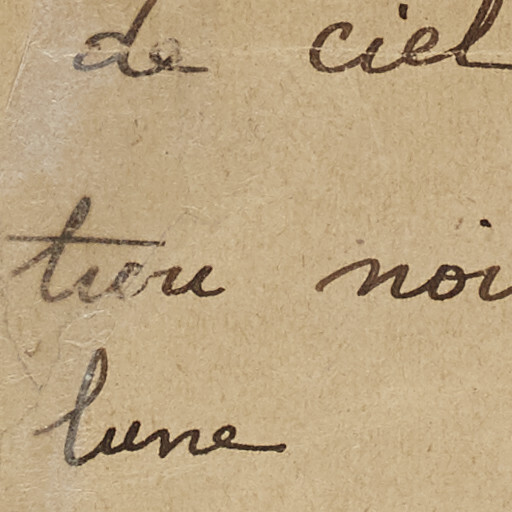 de ciel
trou noi
lune